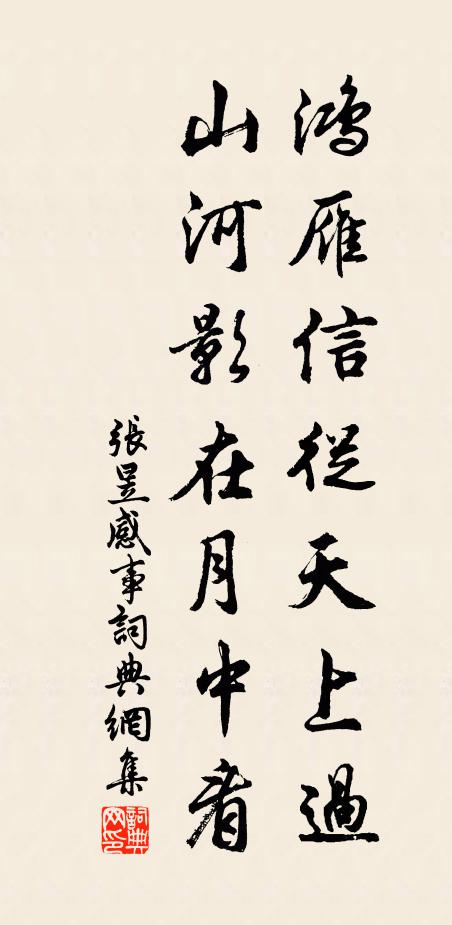 鴻雁信從天上過
山河影在月中看
張昱感事詞典網集
詞典網印